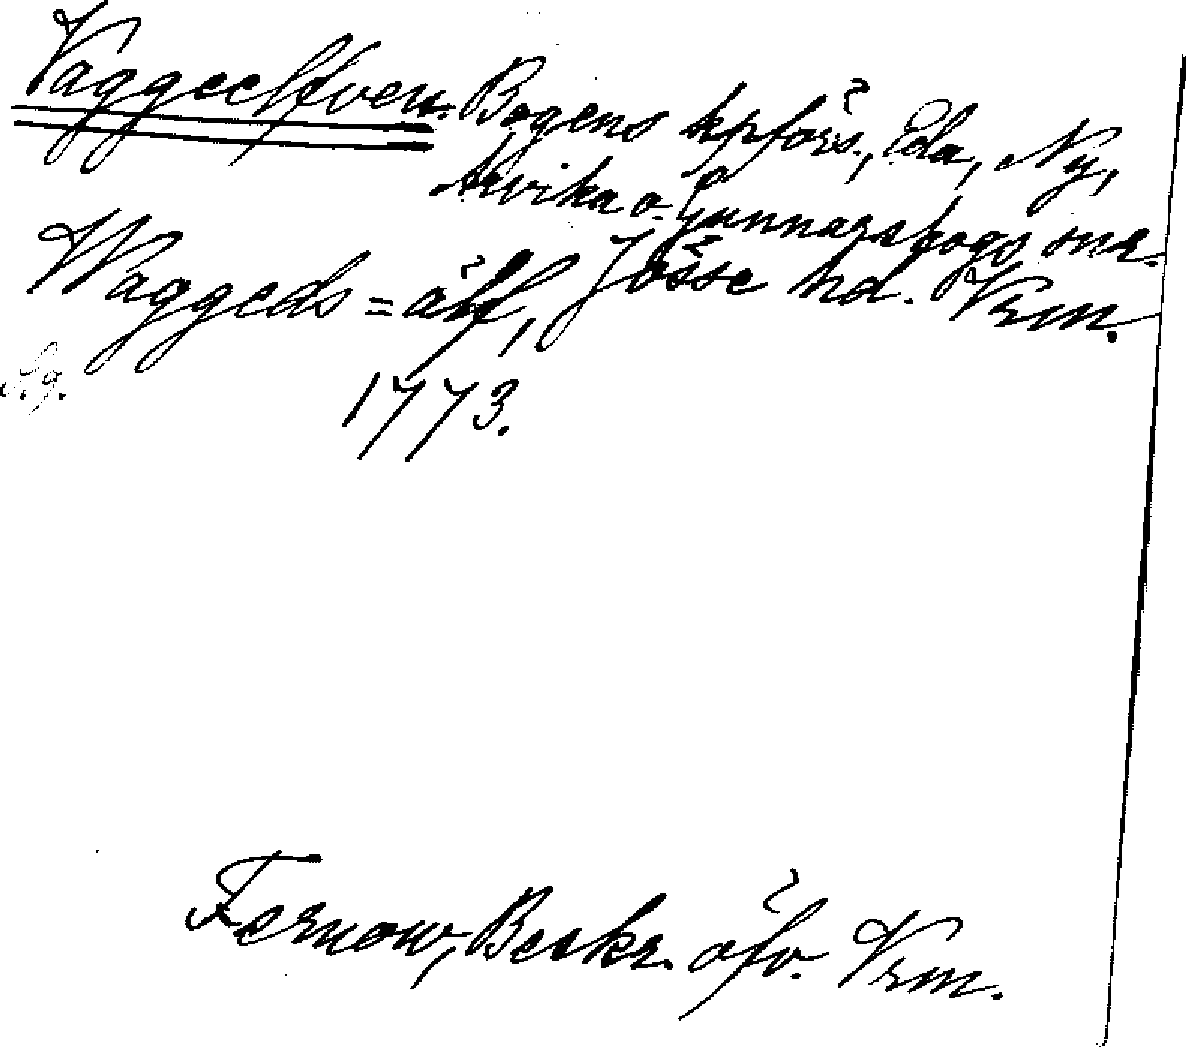 Vaggeelfven. Bogens kpförs., Eda, Ny,
Arvika o. Gunnarskogs snr.
Waggeds=älf, Jösse hd. Vrm.
Lg.
1773.
Fernow, Beskr. öfv. Vrm.